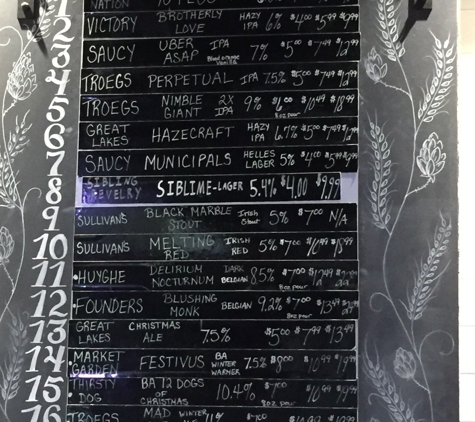 NATION
1
2 VICTORY BROTHERLY LOVE HAZY IPA 6% $4.00 $5.99
3 SAUCY UBER ASAP IPA Blood orange Vanilla 7% $5.00 $7.49
4 TROEGS PERPETUAL IPA 7.5% $5.00 $7.49
5 TROEGS NIMBLE GIANT 2X IPA 9% 8oz pour $10.49 $18.99
6 GREAT LAKES HAZECRAFT HAZY IPA 6.7% $5.00 $7.49
7 SAUCY MUNICIPALS HELLES LAGER 5% $4.00
8 SIBLING REVELRY SIBLIME-LAGER 5.4% $4.00 $9.99
9 SULLIVANS BLACK MARBLE STOUT Irish Stout 5% $7.00 N/A
10 SULLIVANS MELTING RED IRISH RED 5% $7.00 $10.99 $18.99
11 HUYGHE DELIRIUM NOCTURNUM DARK BELGIAN 8.5% $7.00 8oz pour
12 FOUNDERS BLUSHING MONK BELGIAN 9.2% $7.00 8oz pour $13.49
13 GREAT LAKES CHRISTMAS ALE 7.5% $5.00 $7.99 $13.99
14 MARKET GARDEN FESTIVUS BA WINTER WARMER 7.5% $8.00 $10.99
15 THIRSTY DOG BA 12 DOGS OF CHRISTMAS 10.4% 8oz pour $10.99
16 TROEGS MAD WINTER 11% $7.00